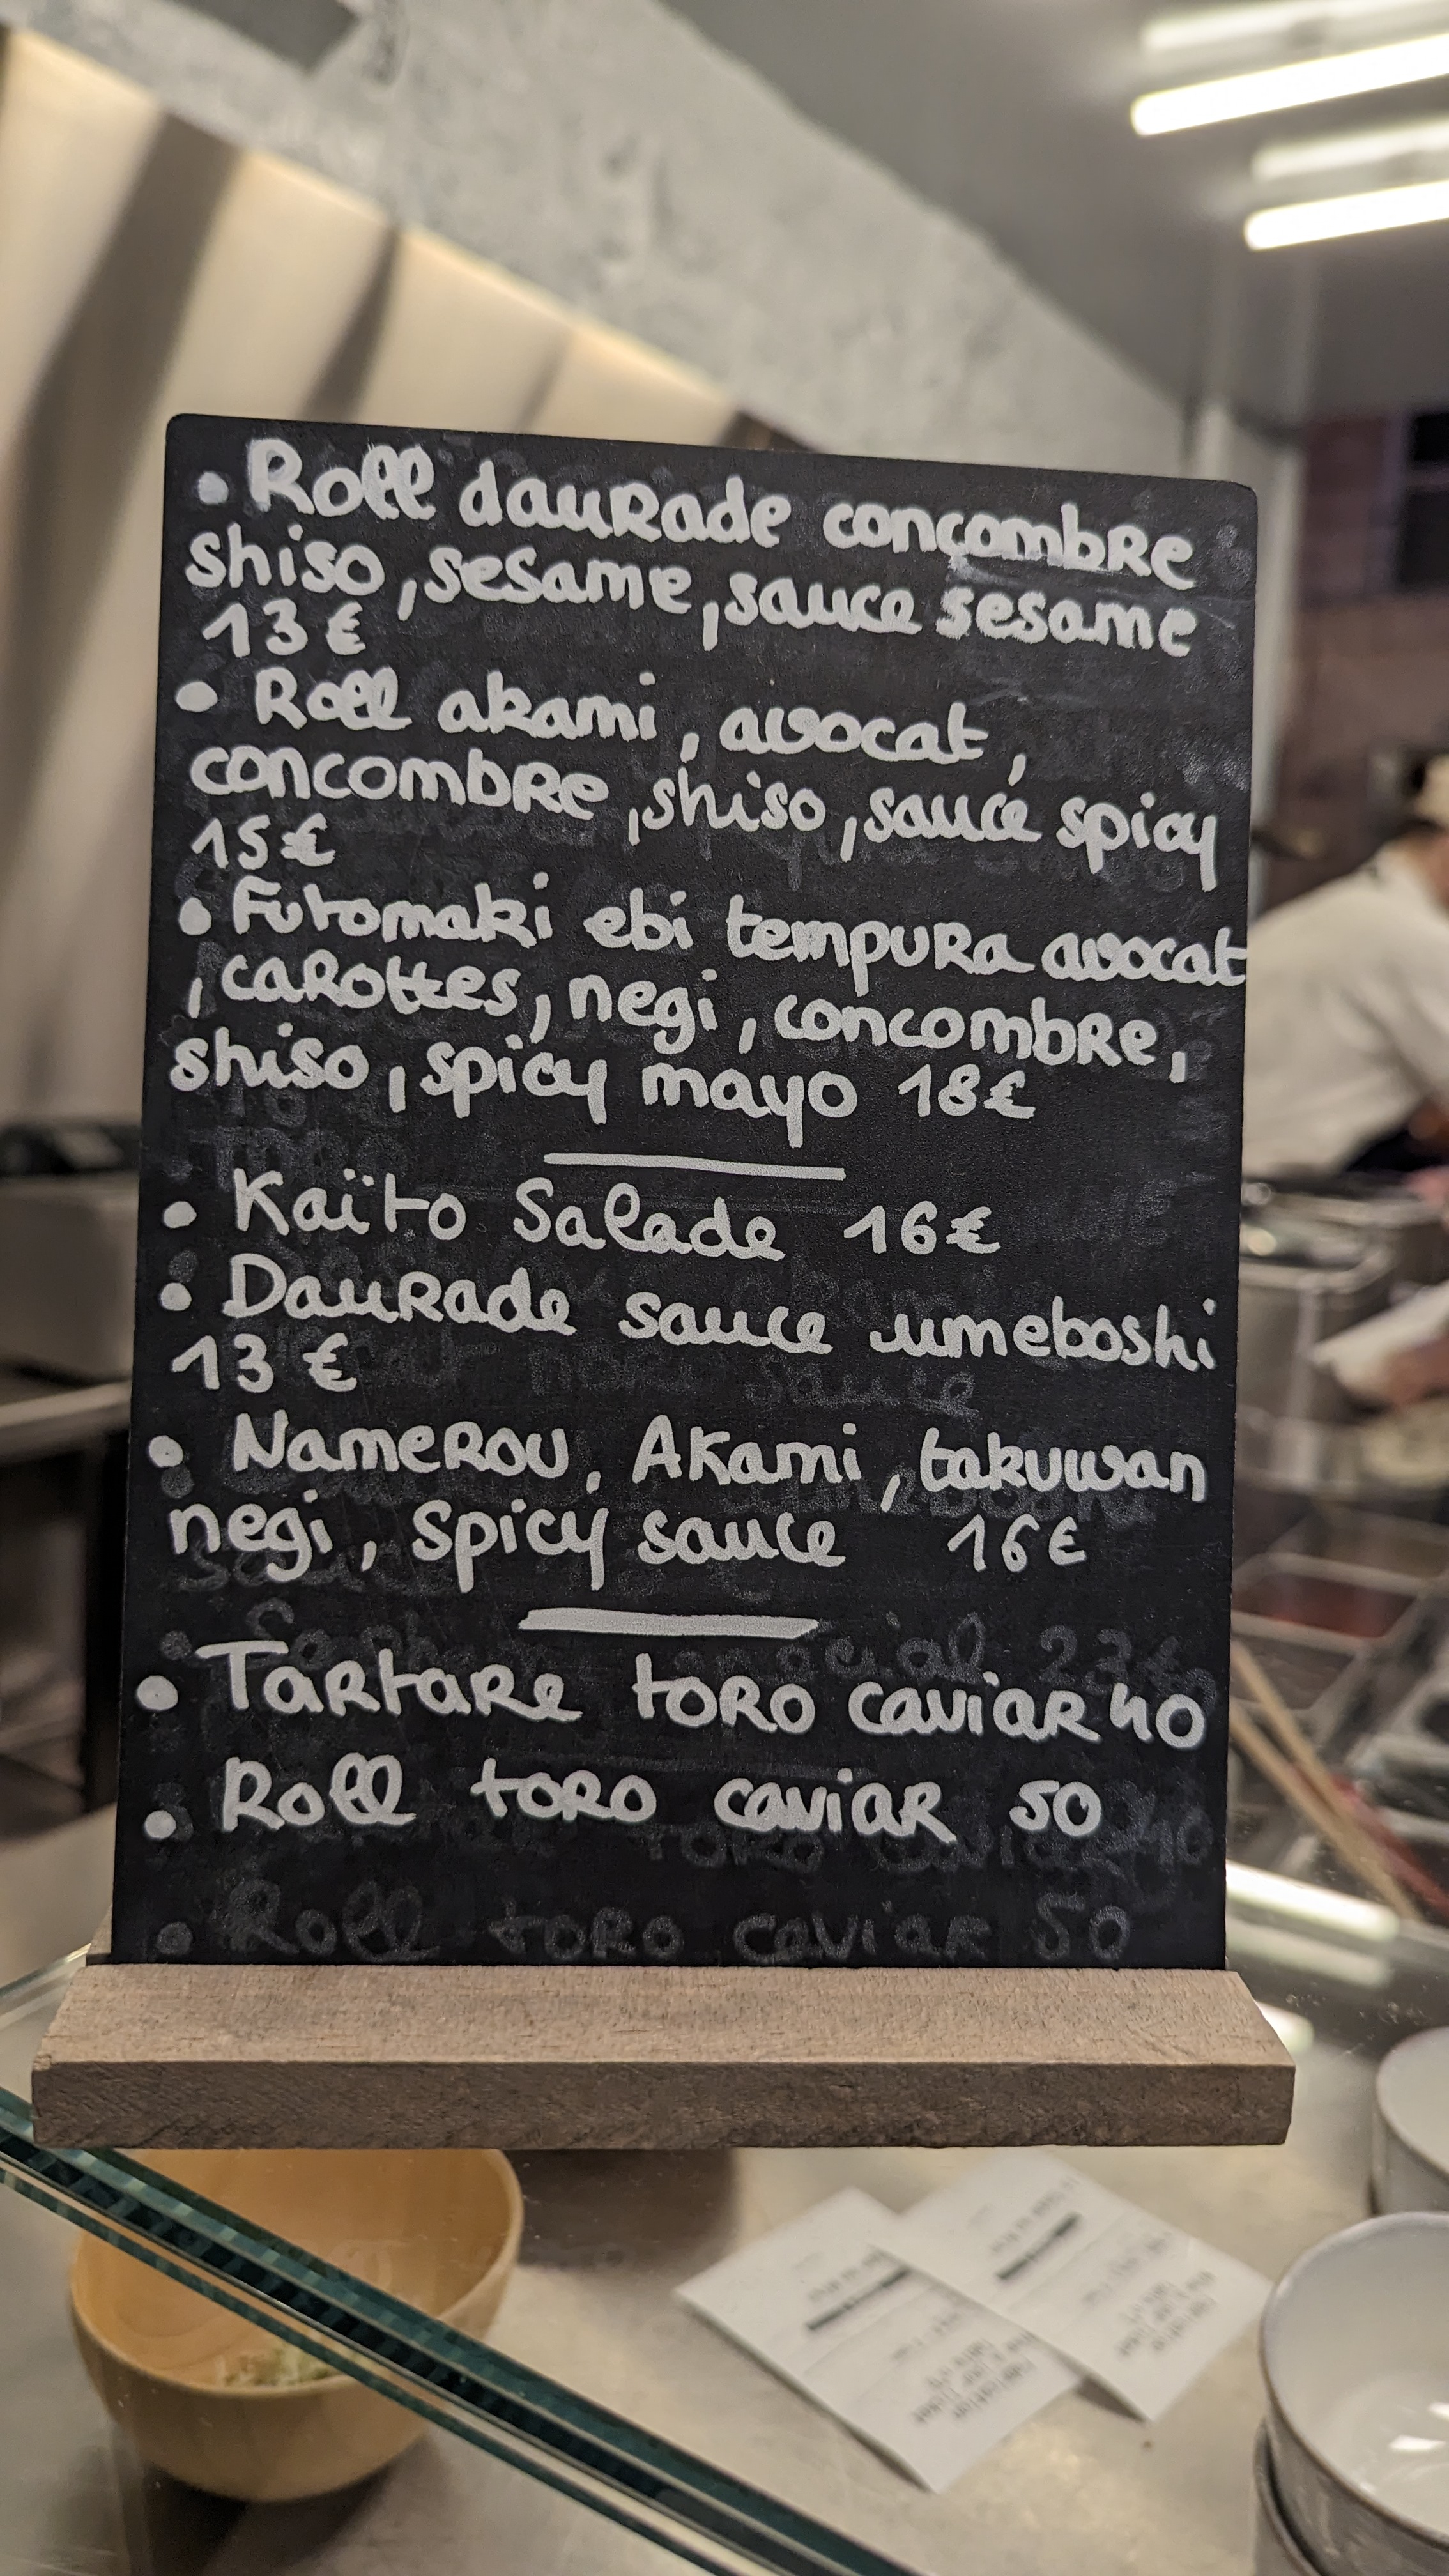 • Roll dauRade concombRe
shiso, sesame, sauce sesame
13€
• Roll akami, avocat,
concombRe, shiso, sauce spicy
15€
• Futomaki ebi tempuRa avocat
, caRottes, negi, concombRe,
shiso, spicy mayo 18€
• Kaïto Salade 16€
• DauRade sauce umeboshi
13€
• NameRou, Akami, takuwan
negi, Spicy sauce 16€
• TaRtaRe toRo caviaR 40
• Roll toRo caviaR 50
• Roll toRo caviaR 50